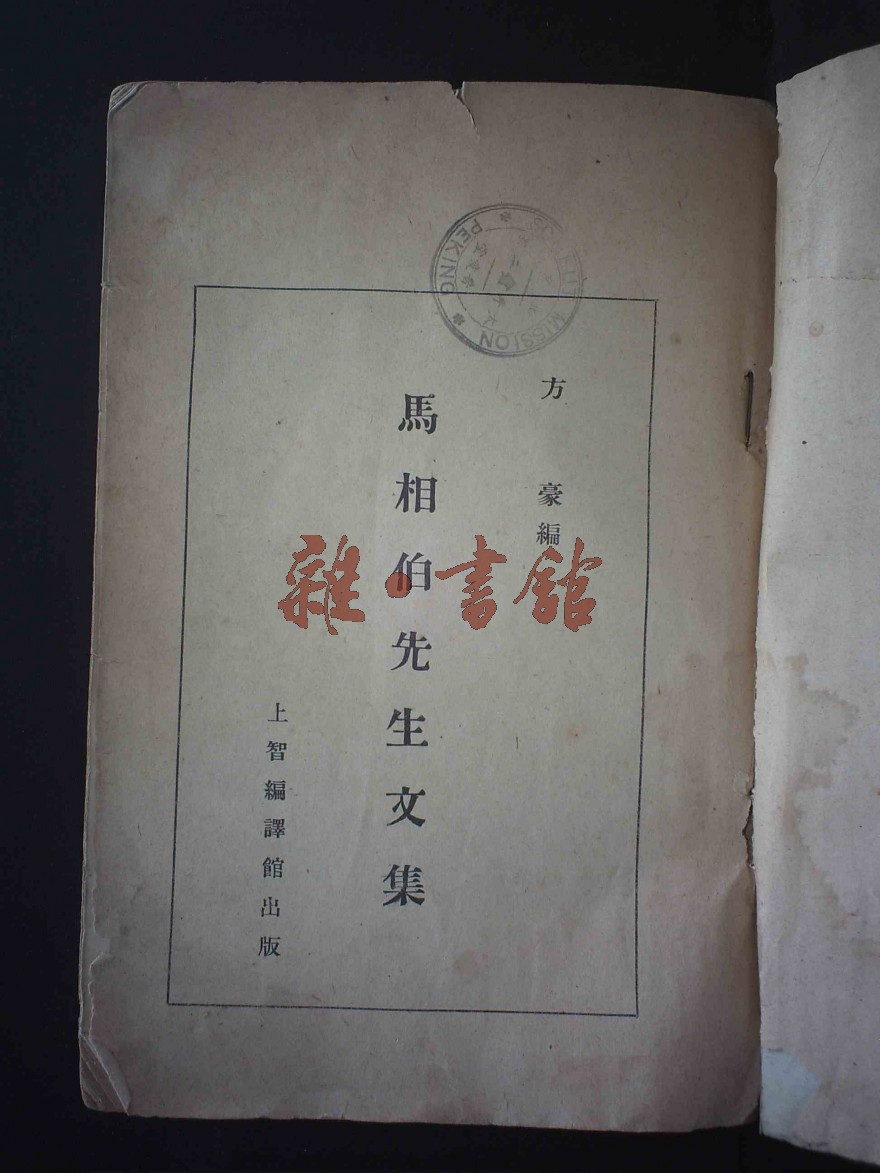 方豪編
馬相伯先生文集
上智編譯館出版
雜·書館
MISSION
PEKING